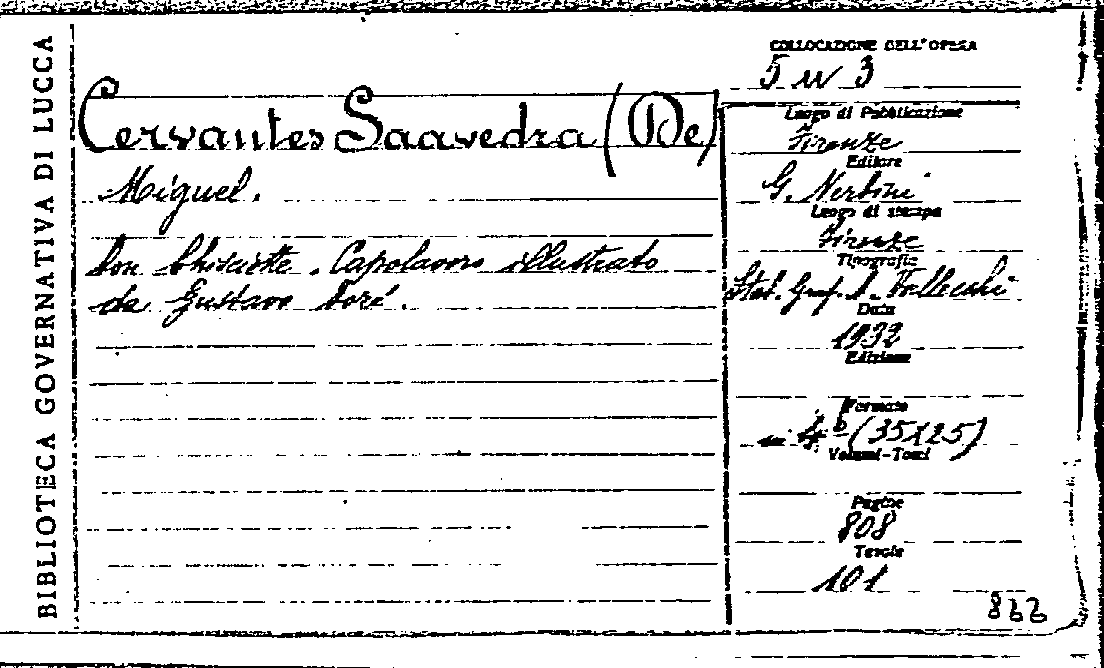 BIBLIOTECA GOVERNATIVA DI LUCCA
COLLOCAZIONE DELL'OPERA
Cervantes Saavedra (De)
Miguel.
Don Chisciotte. Capolavoro illustrato
da Gustavo Doré.
Luogo di Pubblicazione
Firenze
Editore
G. Nerbini
Luogo di stampa
Firenze
Tipografia
Stab. Graf. A. Vallecchi
Data
1932
Edizione
Formato
in 4° (35x25)
Volumi-Tomi
Pagine
808
Tavole
101